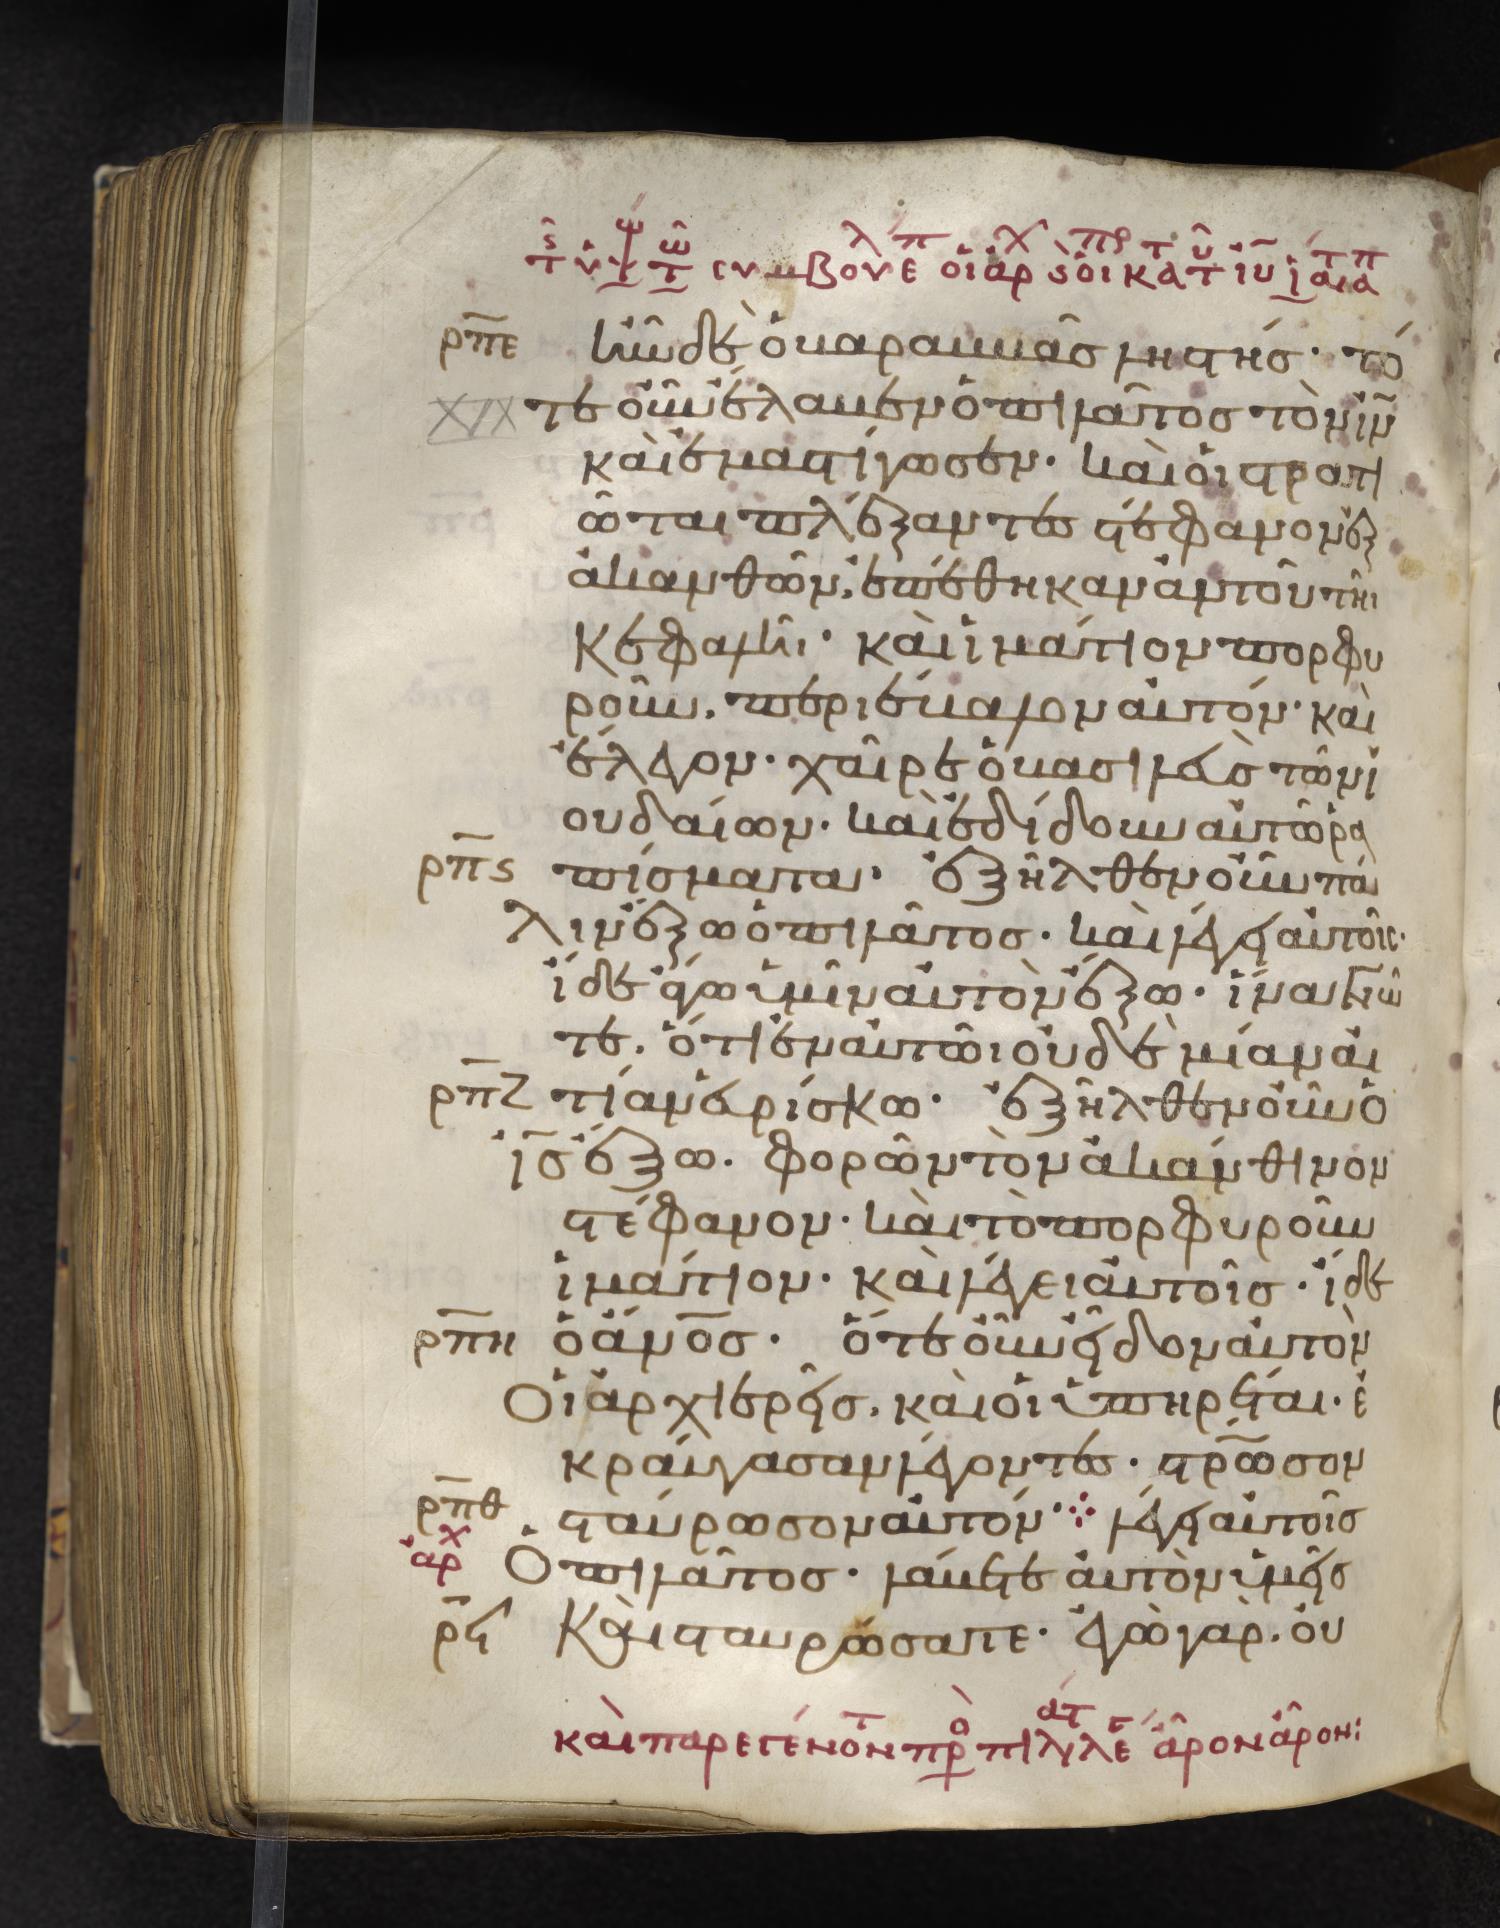 ρπε ἦν δὲ ὁ βαραββᾶς λῃστής· τό
τε οὖν ἔλαβεν ὁ πιλᾶτος τὸν ἰν̅
καὶ ἐμαστίγωσεν· καὶ οἱ στρατι
ῶται πλέξαντες στέφανον ἐξ
ἀκανθῶν, ἐπέθηκαν αὐτοῦ τῆι
κεφαλῆι· καὶ ἱμάτιον πορφυ
ροῦν, περιέβαλον αὐτόν· καὶ
ἔλεγον· χαῖρε ὁ βασιλεὺς τῶν ἰ
ουδαίων· καὶ ἐδίδουν αὐτῶ ῥα
ρπϛ πίσματα· ἐξῆλθεν οὖν πά
λιν ἔξω ὁ πιλᾶτος· καὶ λέγει αὐτοῖς·
ἴδε ἄγω ὑμῖν αὐτὸν ἔξω· ἵνα γνῶ
τε, ὅτι ἐν αὐτῶι οὐδεμίαν αἰ
ρπζ τίαν εὑρίσκω· ἐξῆλθεν οὖν ὁ
ἰς̅ ἔξω. φορῶν τὸν ἀκάνθινον
στέφανον· καὶ τὸ πορφυροῦν
ἱμάτιον· καὶ λέγει αὐτοῖς· ἴδε
ρπη ὁ ἄνο̅ς· ὅτε οὖν εἶδον αὐτὸν
Οἱ ἀρχιερεῖς, καὶ οἱ ὑπηρέται· ἐ
κραύγασαν λέγοντες· στρω̅σον
ρπθ σταύρωσον αὐτόν· λέγει αὐτοῖς
ἀρχ Ὁ πιλᾶτος· λάβετε αὐτὸν ὑμεῖς
ρϟ Καὶ σταυρώσατε· ἐγὼ γὰρ. οὐ
καὶ παρεγένον ἆρον ἆρον: